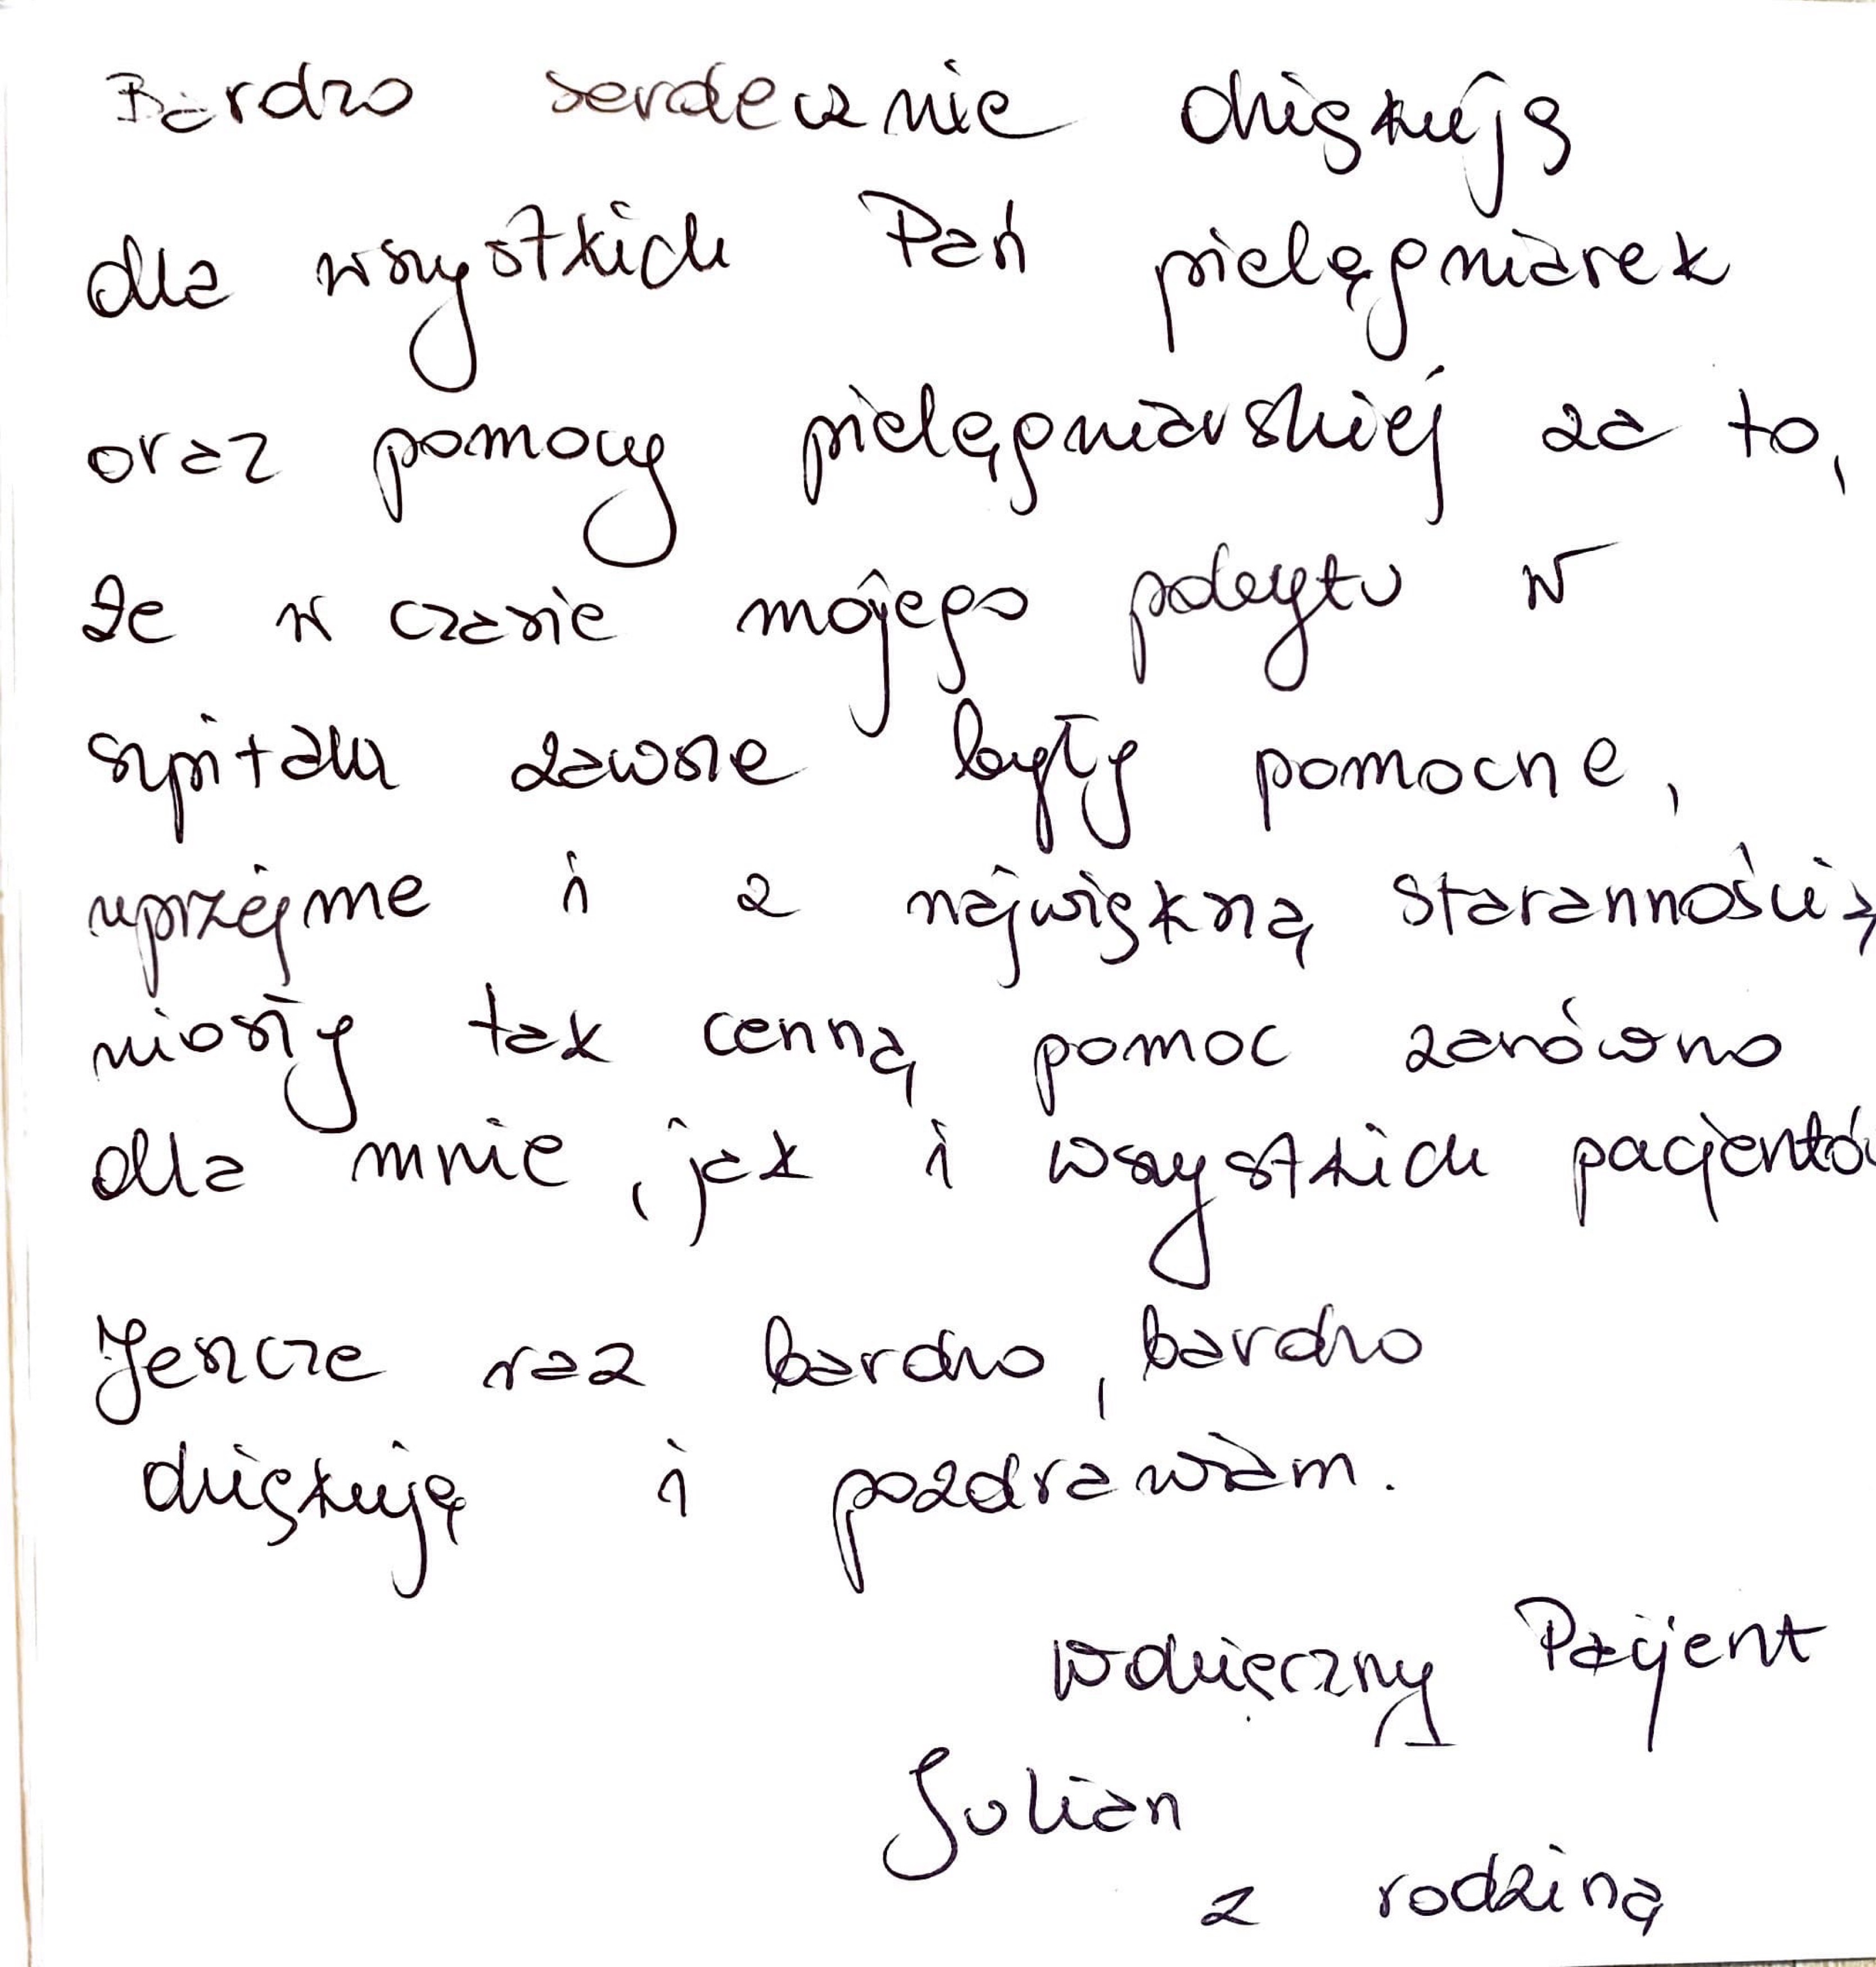 Bardzo serdecznie dziękuję
dla wszystkich Pań pielęgniarek
oraz pomocy pielęgniarskiej za to,
że w czasie mojego pobytu w
szpitalu zawsze były pomocne,
uprzejme i z największą starannością
niosły tak cenną pomoc zarówno
dla mnie, jak i wszystkich pacjentów
Jeszcze raz bardzo, bardzo
dziękuję i pozdrawiam.
Wdzięczny Pacjent
Julian
z rodziną